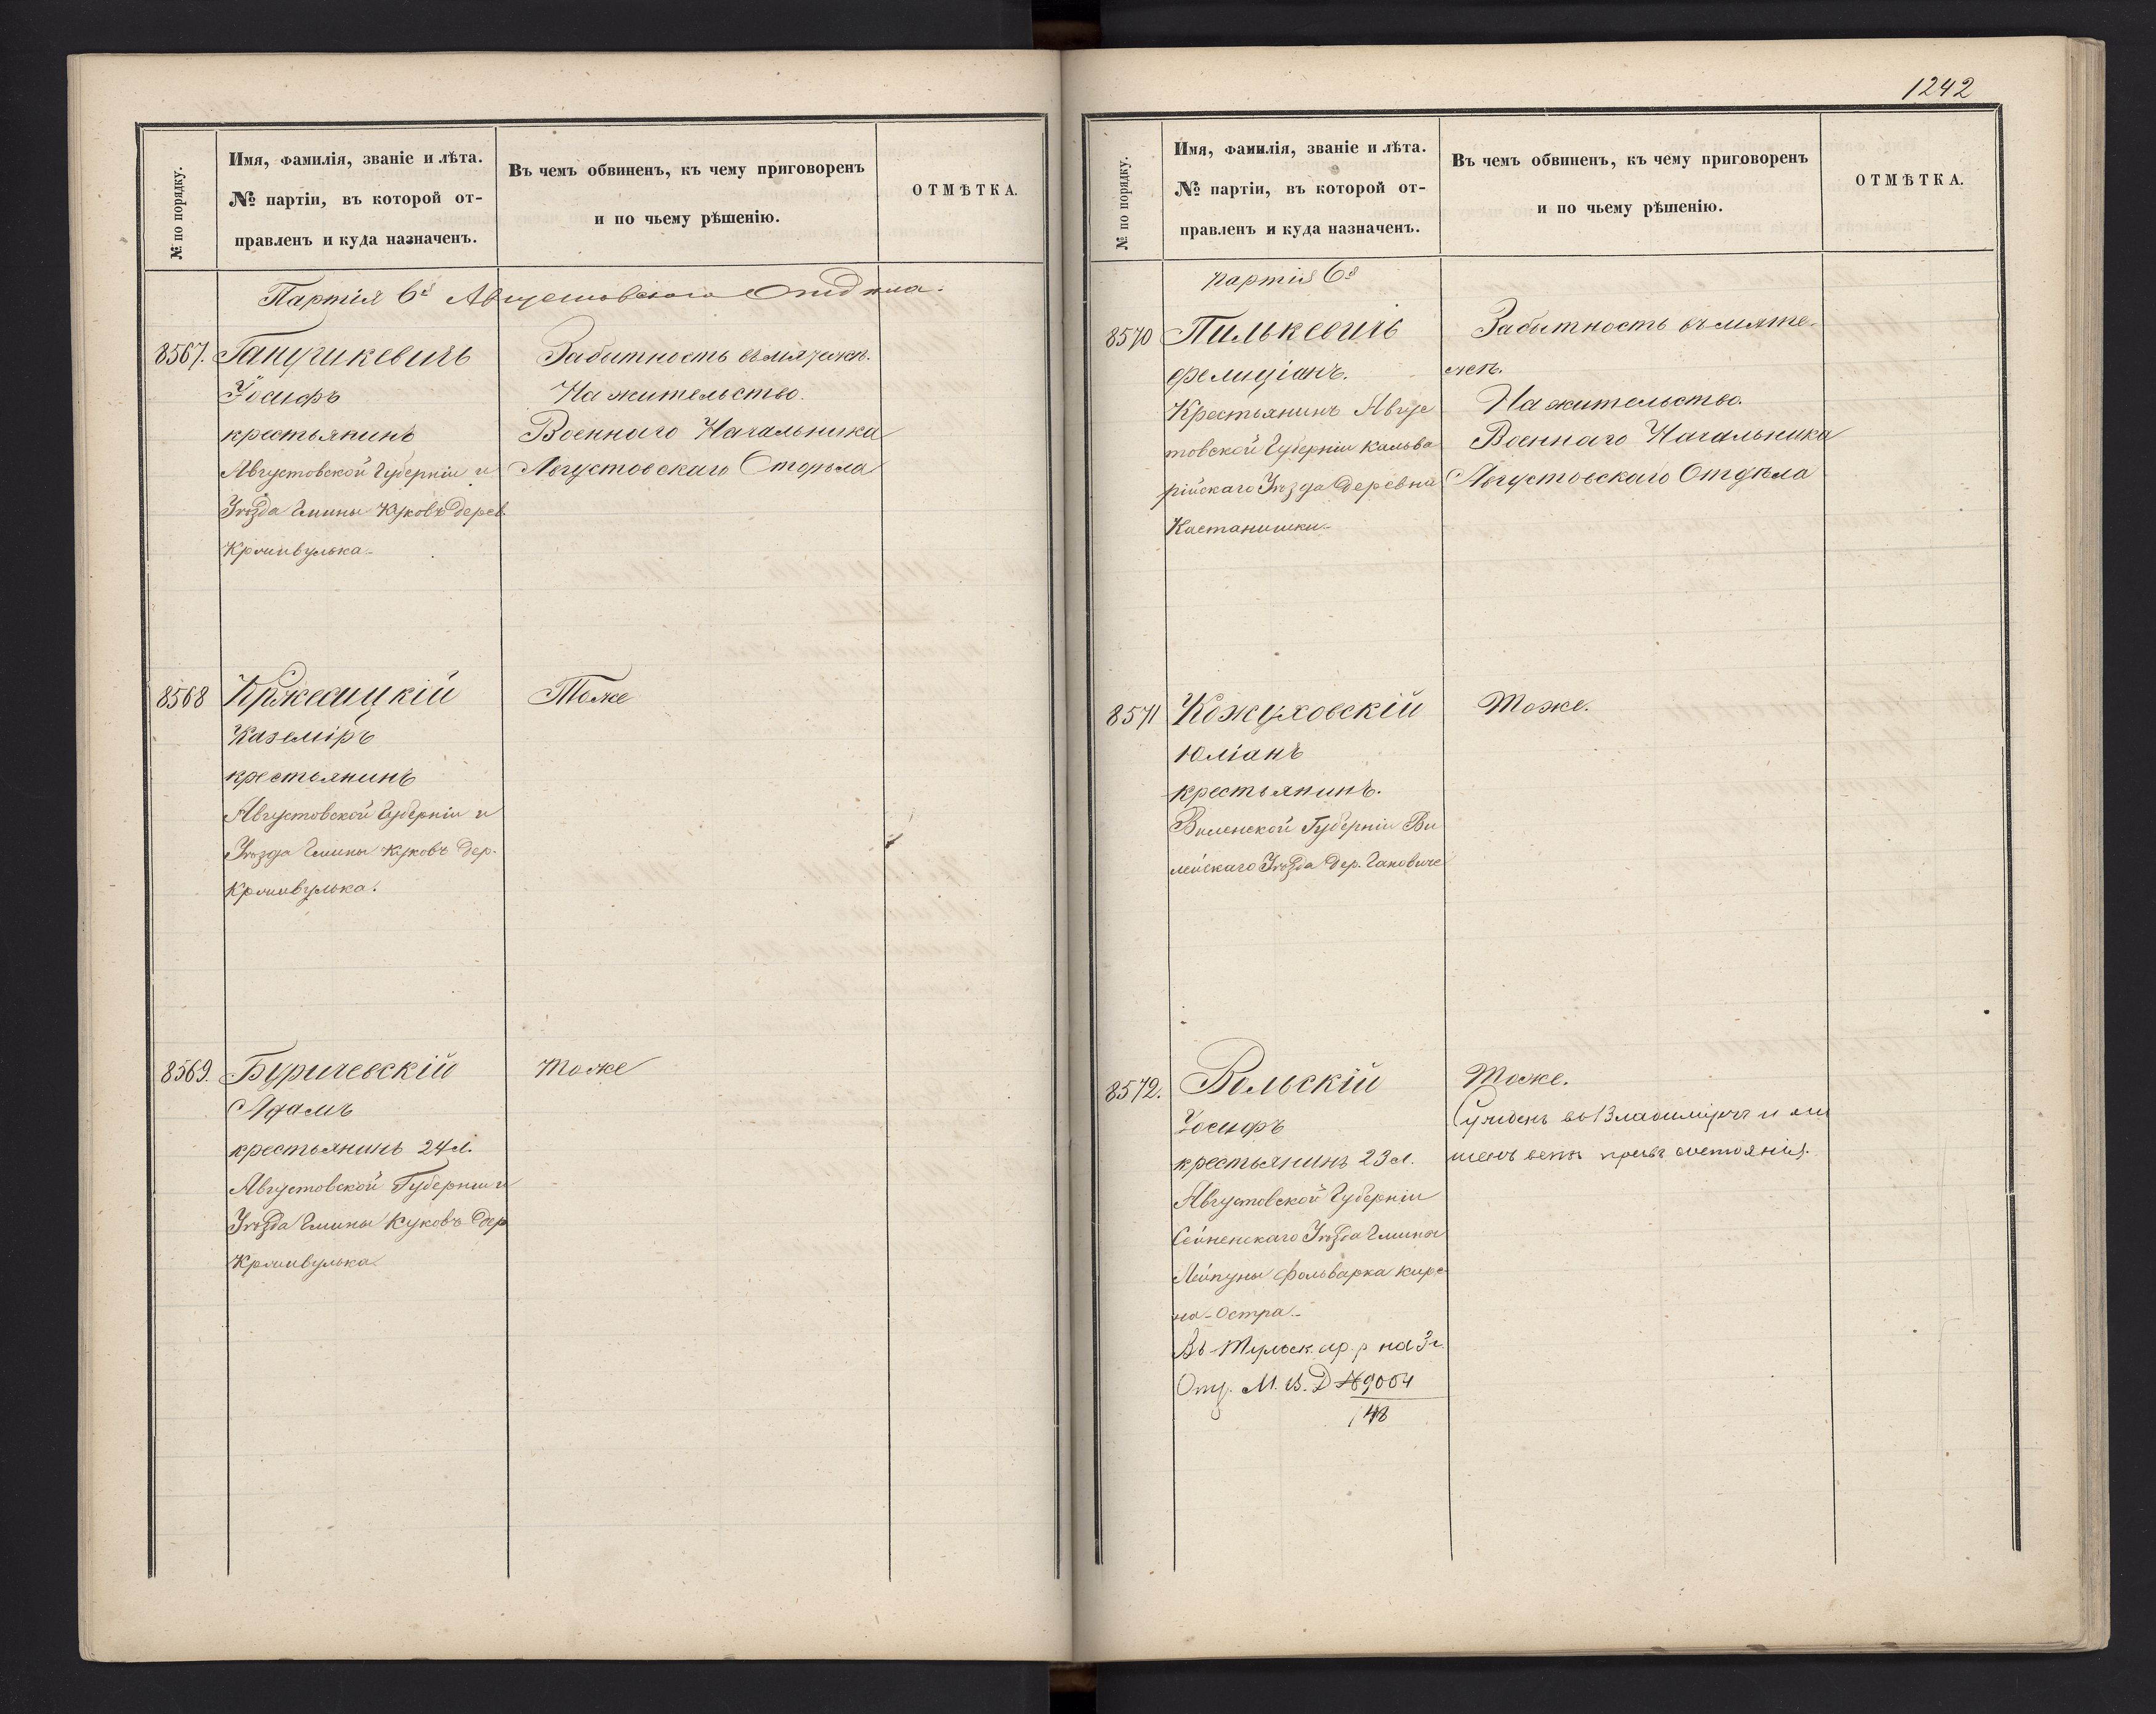 № по порядку.
Имя, фамилія, званіе и лѣта.
№ партіи, въ которой от-
правленъ и куда назначенъ.
Въ чемъ обвиненъ, къ чему приговоренъ
и по чьему рѣшенію.
ОТМѢТКА.
Партія 6я Августовскаго Отдѣла.
8567.
Іосифъ
крестьянинъ
Августовской Губерніи и
Уѣзда Гмины Куковъ Дерев.
Кршивулька
За бытность въ мятежѣ.
На жительство.
Военнаго Начальника
Августовскаго Отдѣла
8568
Кржесицкій
Каземіръ
крестьянинъ
Августовской Губерніи и
Уѣзда Гмины Куковъ Дер.
Кршивулька.
Тоже
8569.
Буричевскій
Адамъ
крестьянинъ 24 л.
Августовской Губерніи и
Уѣзда Гмины Куковъ Дер
Кршивулька
Тоже
1242
№ по порядку.
Имя, фамилія, званіе и лѣта.
№ партіи, въ которой от-
правленъ и куда назначенъ.
Въ чемъ обвиненъ, къ чему приговоренъ
и по чьему рѣшенію.
ОТМѢТКА.
партія 6я
8570
Пилькевичъ
Фелиціанъ.
Крестьянинъ Авгус
товской Губерніи Кальва
рійскаго Уѣзда Деревна
Кастанишки
За бытность въ мяте-
жѣ.
На жительство.
Военнаго Начальника
Августовскаго Отдѣла
8571
Кожуховскій
Юліанъ
крестьянинъ.
Виленской Губерніи Ви
лейскаго Уѣзда Дер. Гановиче
Тоже.
8572.
Вольскій
Іосифъ
крестьянинъ 23 л.
Августовской Губерніи
Сейненскаго Уѣзда Гмины
Лейпуны Фольварка Кирс
на-Остра
Въ Тульск. ар. р на 3 г.
М. В. Д №9004
148
Тоже.
Сужденъ во Владимірѣ и ли
шенъ всѣхъ правъ состоянія.